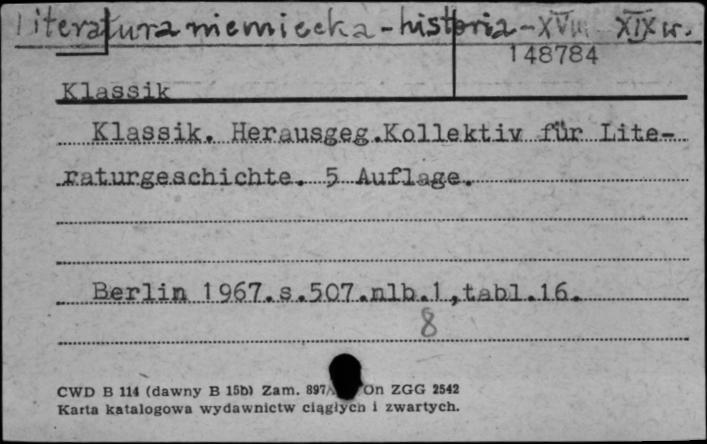 Literatura niemiecka - historia - XVIII XIX w.
148784
Klassik
Klassik. Herausgeg.Kollektiv für Lite-
raturgeschichte. 5 Auflage.
Berlin 1967.s.507.nlb.1,tabl.16.
8
CWD B 114 (dawny B 15b) Zam. 897/ On ZGG 2542
Karta katalogowa wydawnictw ciągłych i zwartych.